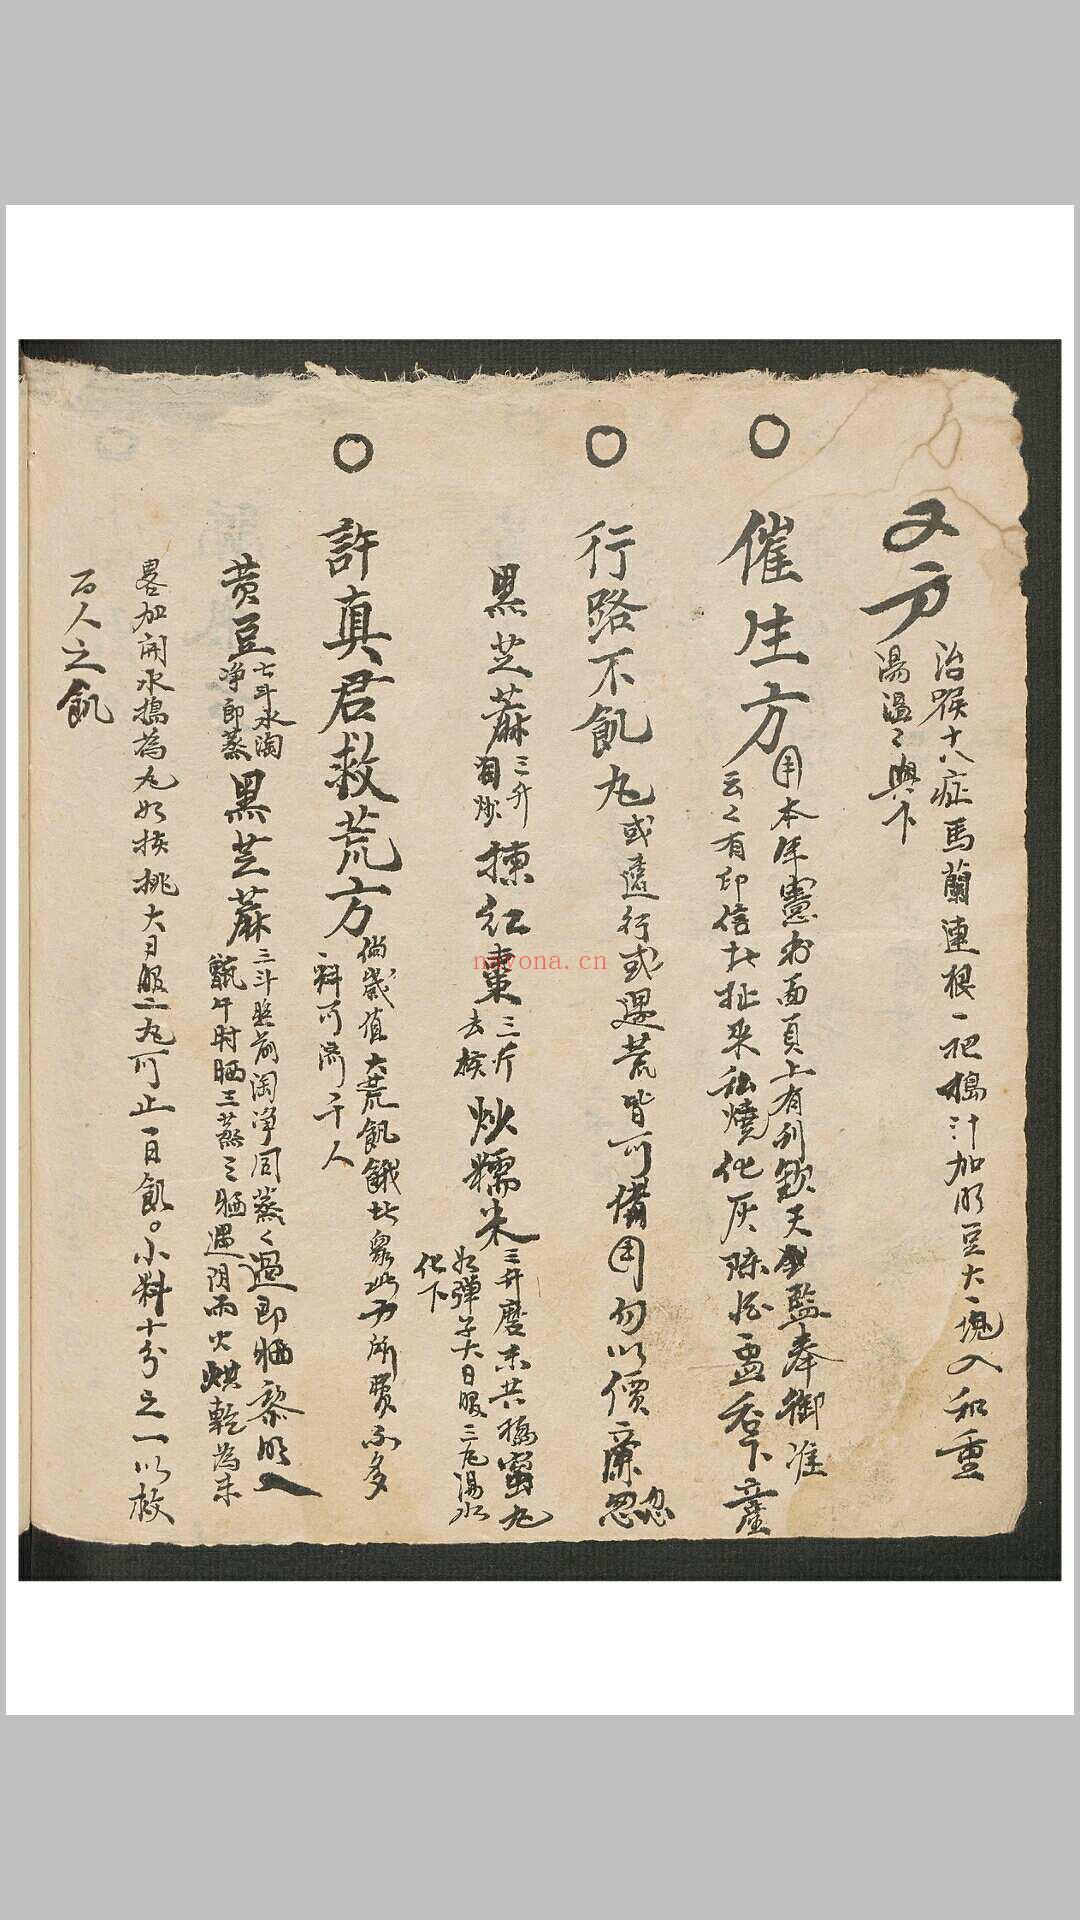 又方
治喉十八症馬蘭連根一把搗汁加明豆大一塊入和重
湯温〻與下
○
催生方
用本年憲書面頁上有刊欽天監奉御准
云〻有印信扯來私燒化灰陳
下產
○
行路不飢丸
或遠行或遇荒皆可備用勿以價廉忽
忽
黑芝蔴
三升
淘炒
揀紅棗
三斤
去核
炒糯米
三升磨末共搗蜜丸
如彈子大日服三丸湯水
化下
○
許真君救荒方
倘歲值大荒飢餓此方所費不多
一料可濟千人
黃豆
七斗水淘
净即蒸
黑芝蔴
三斗照前淘净同蒸〻過即晒黎明入
甑午时晒三蒸三晒遇阴雨火烘乾為末
畧加開水搗為丸如核桃大日服二丸可止一日飢。小料十分之一以救
百人之飢
nayona.cn